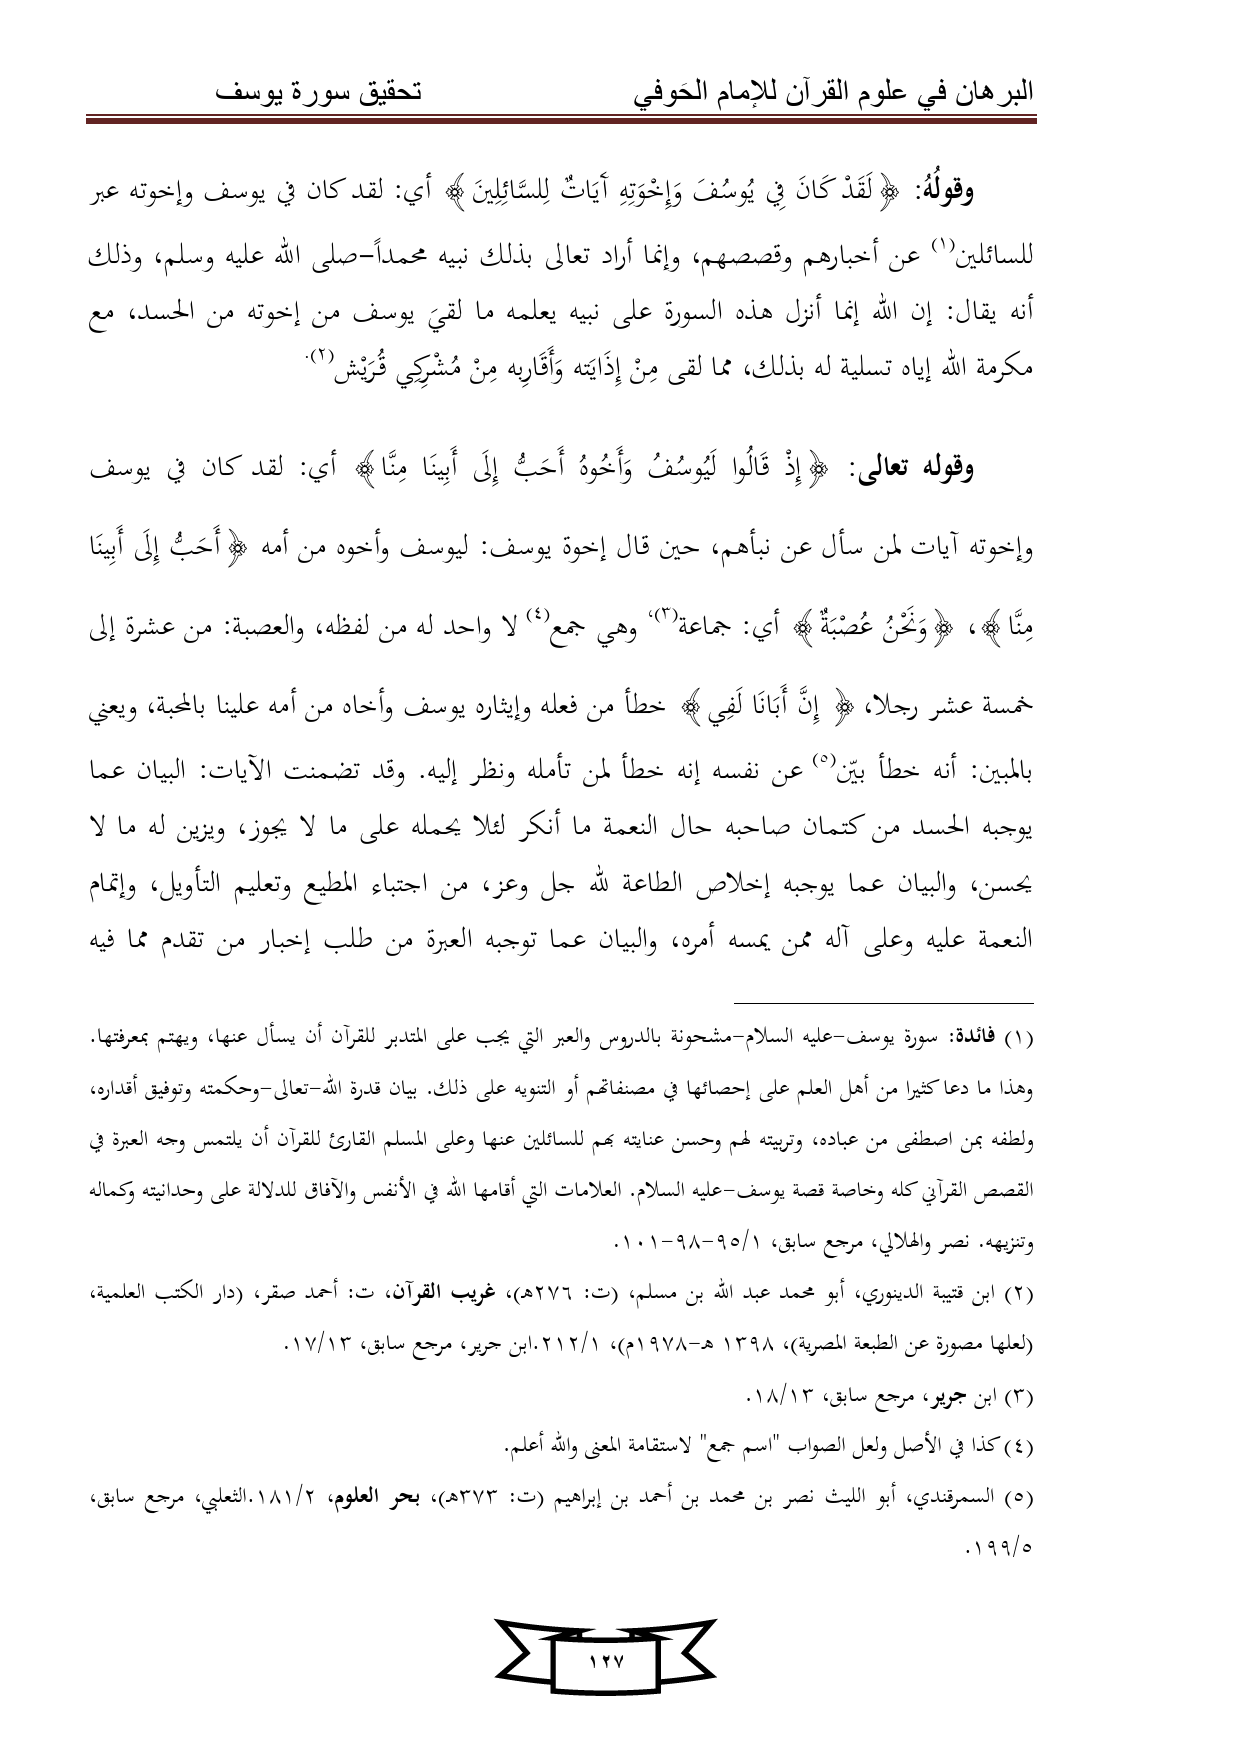 البرهان في علوم القرآن للإمام الحَوفي تحقيق سورة يوسف
وقولُهُ: ﴿لَقَدْ كَانَ فِي يُوسُفَ وَإِخْوَتِهِ آيَاتٌ لِلسَّائِلِينَ﴾ أي: لقد كان في يوسف وإخوته عبر
للسائلين(١) عن أخبارهم وقصصهم، وإنما أراد تعالى بذلك نبيه محمداً-صلى الله عليه وسلم، وذلك
أنه يقال: إن الله إنما أنزل هذه السورة على نبيه يعلمه ما لقيَ يوسف من إخوته من الحسد، مع
مكرمة الله إياه تسلية له بذلك، مما لقى مِنْ إِذَايَته وَأَقَاربِه مِنْ مُشْركِي قُرَيْش(٢).
وقوله تعالى: ﴿إِذْ قَالُوا لَيُوسُفُ وَأَخُوهُ أَحَبُّ إِلَى أَبِينَا مِنَّا﴾ أي: لقد كان في يوسف
وإخوته آيات لمن سأل عن نبأهم، حين قال إخوة يوسف: ليوسف وأخوه من أمه ﴿أَحَبُّ إِلَى أَبِينَا
مِنَّا﴾، ﴿وَنَحْنُ عُصْبَةٌ﴾ أي: جماعة(٣)، وهي جمع(٤) لا واحد له من لفظه، والعصبة: من عشرة إلى
خمسة عشر رجلا، ﴿ إِنَّ أَبَانَا لَفِي﴾ خطأ من فعله وإيثاره يوسف وأخاه من أمه علينا بالمحبة، ويعني
بالمبين: أنه خطأ بيّن(٥) عن نفسه إنه خطأ لمن تأمله ونظر إليه. وقد تضمنت الآيات: البيان عما
يوجبه الحسد من كتمان صاحبه حال النعمة ما أنكر لئلا يحمله على ما لا يجوز، ويزين له ما لا
يحسن، والبيان عما يوجبه إخلاص الطاعة لله جل وعز، من اجتباء المطيع وتعليم التأويل، وإتمام
النعمة عليه وعلى آله ممن يمسه أمره، والبيان عما توجبه العبرة من طلب إخبار من تقدم مما فيه
(١) فائدة: سورة يوسف-عليه السلام-مشحونة بالدروس والعبر التي يجب على المتدبر للقرآن أن يسأل عنها، ويهتم بمعرفتها.
وهذا ما دعا كثيرا من أهل العلم على إحصائها في مصنفاتهم أو التنويه على ذلك. بيان قدرة الله-تعالى-وحكمته وتوفيق أقداره،
ولطفه بمن اصطفى من عباده، وتربيته لهم وحسن عنايته بهم للسائلين عنها وعلى المسلم القارئ للقرآن أن يلتمس وجه العبرة في
القصص القرآني كله وخاصة قصة يوسف-عليه السلام. العلامات التي أقامها الله في الأنفس والآفاق للدلالة على وحدانيته وكماله
وتنزيهه. نصر والهلالي، مرجع سابق، ٩٥/١-٩٨-١٠١.
(٢) ابن قتيبة الدينوري، أبو محمد عبد الله بن مسلم، (ت: ٢٧٦هـ)، غريب القرآن، ت: أحمد صقر، (دار الكتب العلمية،
(لعلها مصورة عن الطبعة المصرية)، ١٣٩٨ هـ-١٩٧٨م)، ٢١٢/١.ابن جرير، مرجع سابق، ١٧/١٣.
(٣) ابن جرير، مرجع سابق، ١٨/١٣.
(٤) كذا في الأصل ولعل الصواب "اسم جمع" لاستقامة المعنى والله أعلم.
(٥) السمرقندي، أبو الليث نصر بن محمد بن أحمد بن إبراهيم (ت: ٣٧٣هـ)، بحر العلوم، ١٨١/٢.الثعلبي، مرجع سابق،
١٩٩/٥.
١٢٧